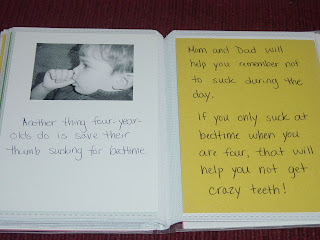 Another thing four-year-
olds do is save their
thumb sucking for bedtime
Mom and Dad will
help you remember not
to suck during the
day.
if you only suck at
bedtime when you
are four, that will
help you not get
crazy teeth!